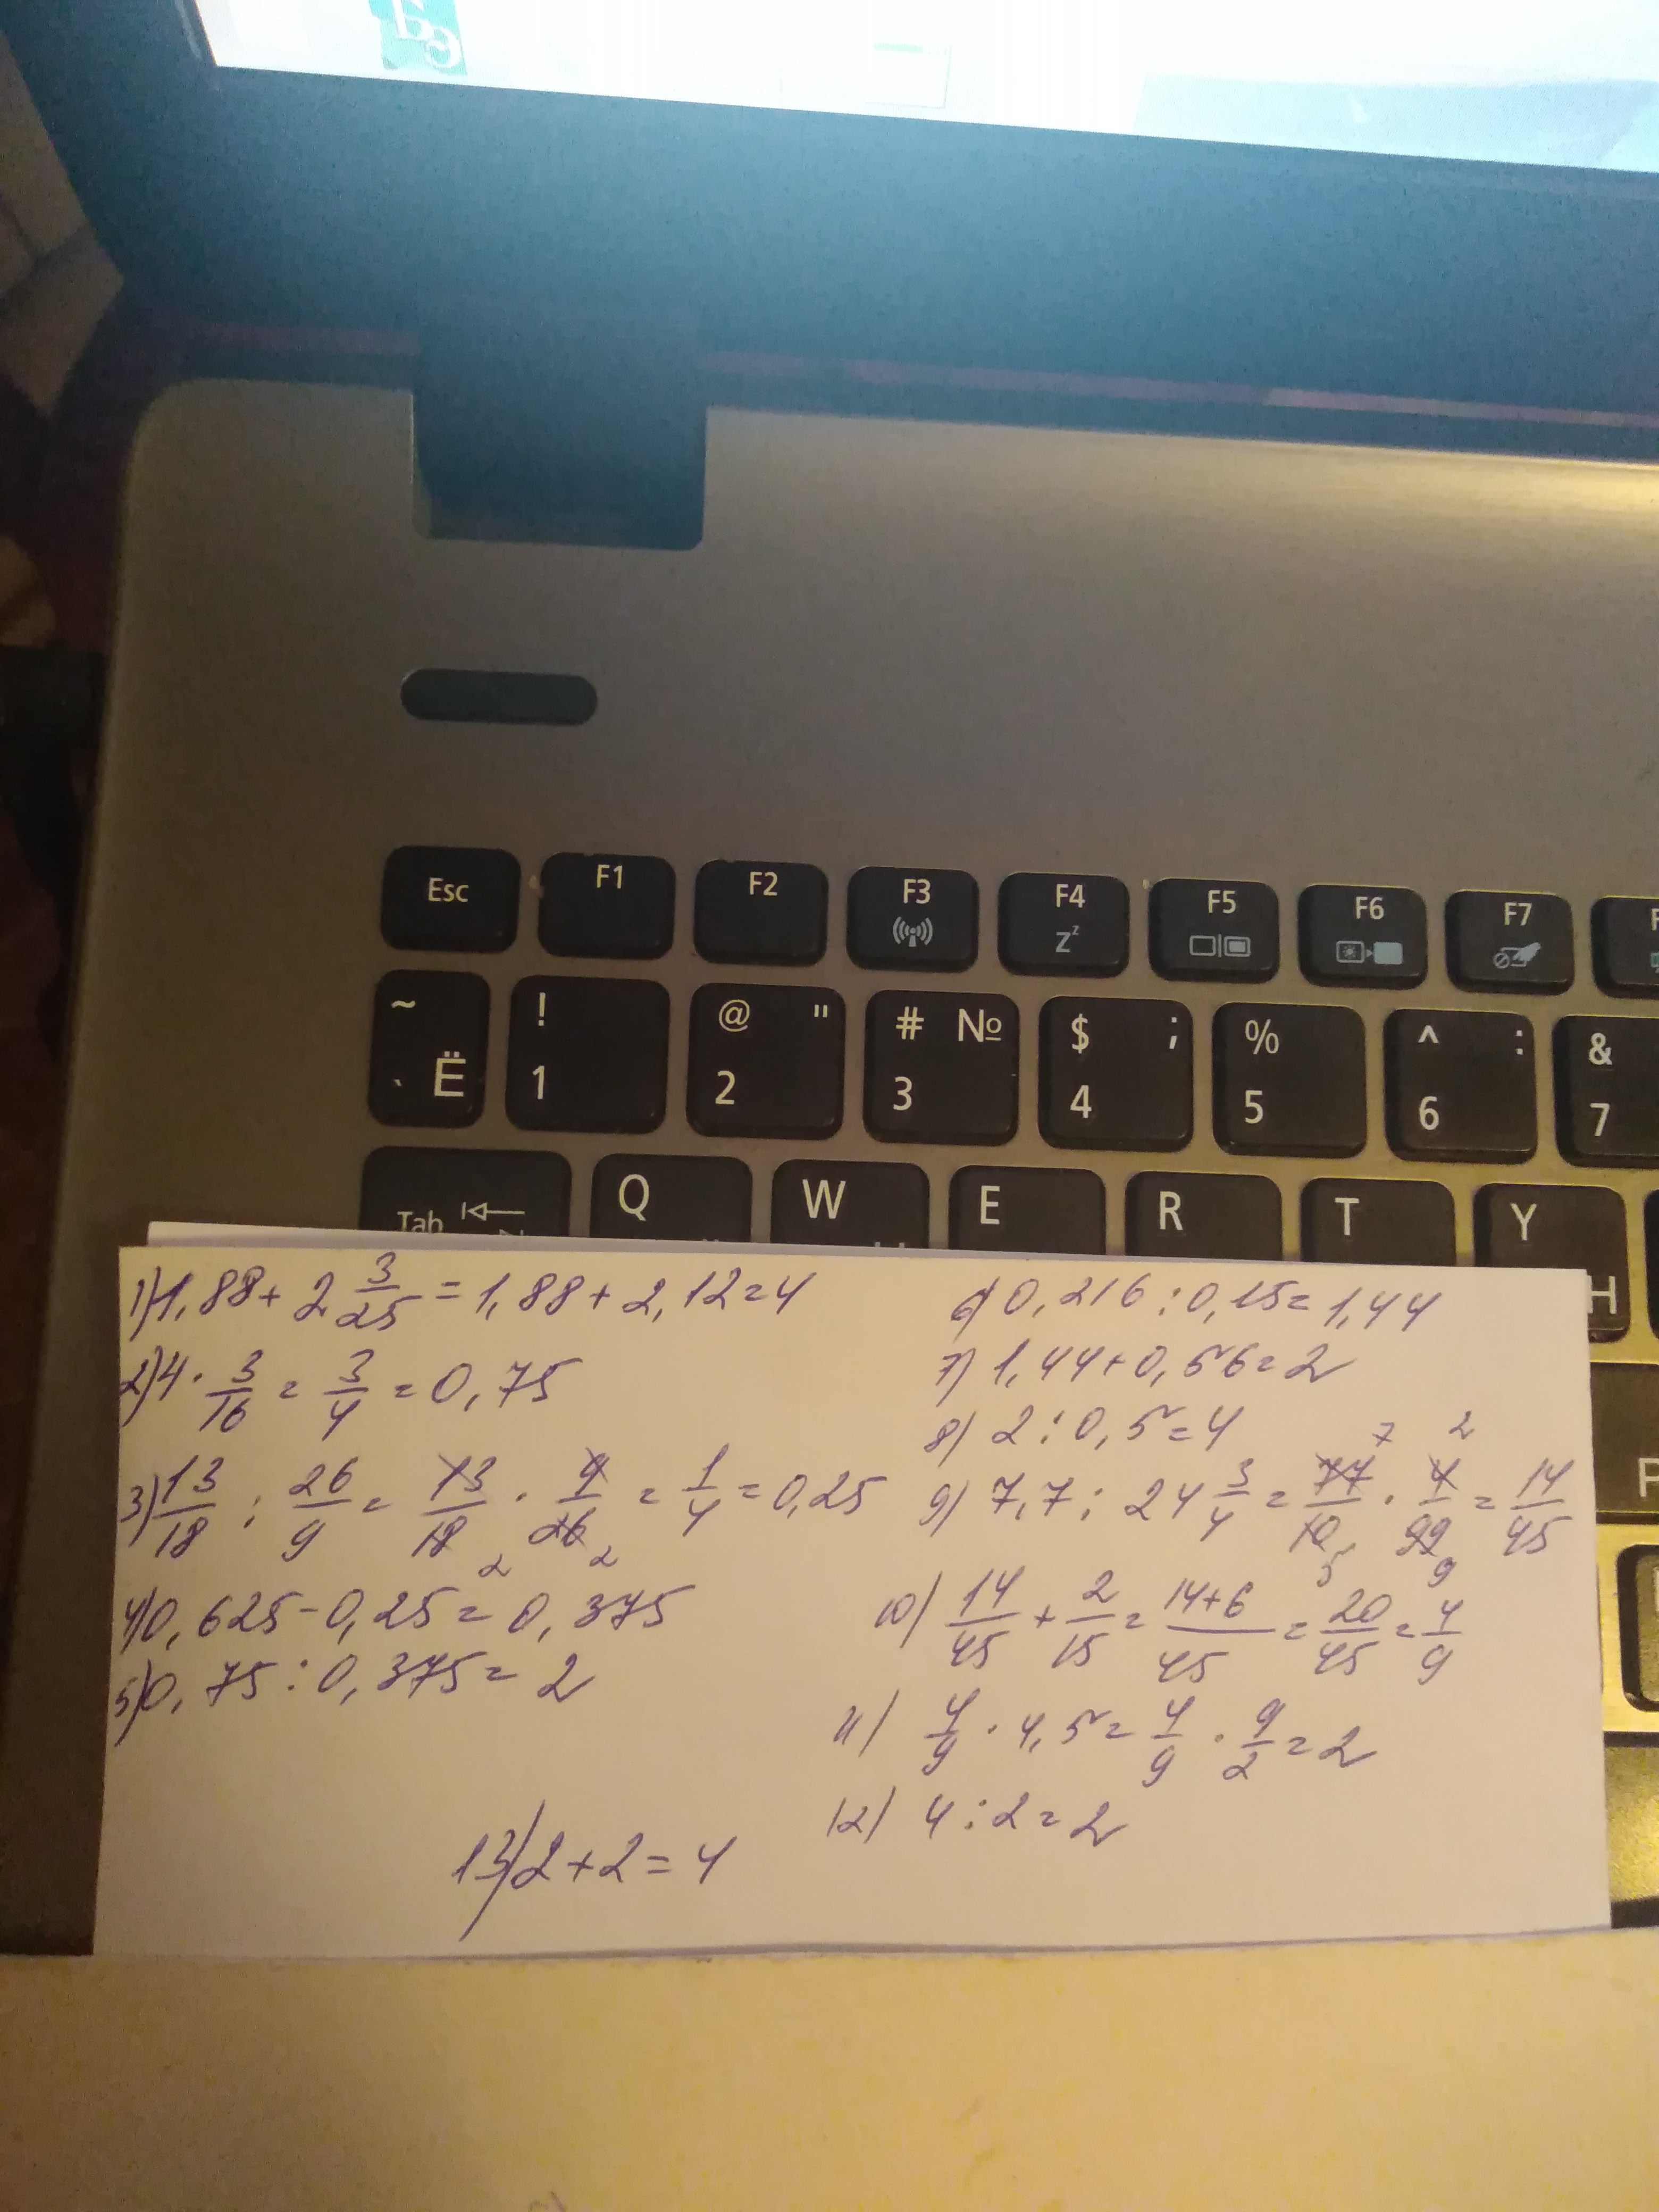 Esc F1 F2 F3 F4 F5 F6 F7
Zz
~ ! @ " # № $ ; % ^ : &
` Ё 1 2 3 4 5 6 7
Tab Q W E R T Y
H
P
1) 1,88 + 2 3/25 = 1,88 + 2,12 = 4
2) 4 · 3/16 = 3/4 = 0,75
3) 13/18 : 26/9 = 13/18 2 · 9/26 2 = 1/4 = 0,25
4) 0,625 - 0,25 = 0,375
5) 0,75 : 0,375 = 2
6) 0,216 : 0,15 = 1,44
7) 1,44 + 0,56 = 2
8) 2 : 0,5 = 4
9) 7,7 : 24 3/4 = 77 7/10 5 · 4 2/99 9 = 14/45
10) 14/45 + 2/15 = 14+6/45 = 20/45 = 4/9
11) 4/9 · 4,5 = 4/9 · 9/2 = 2
12) 4 : 2 = 2
13) 2 + 2 = 4